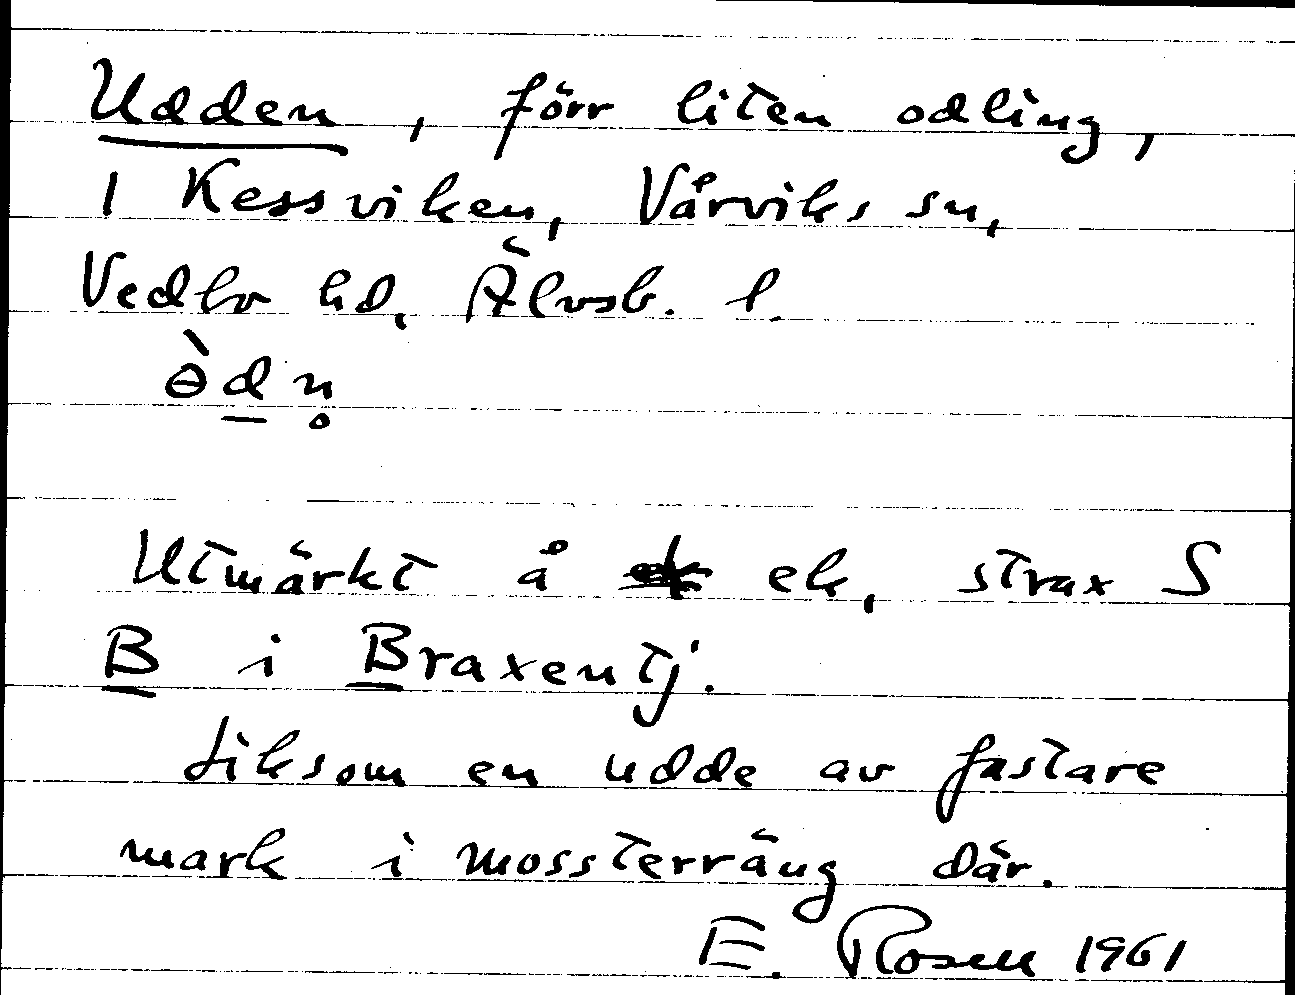 Udden, förr liten odling,
i Kessviken, Vårviks sn,
Vedbo hd, Älvsb. l.
ɵ̀d̲n̥
Utmärkt å ek, strax S
B i Braxentj.
Liksom en udde av fastare
mark i mossterräng där.
E. Rosell 1961